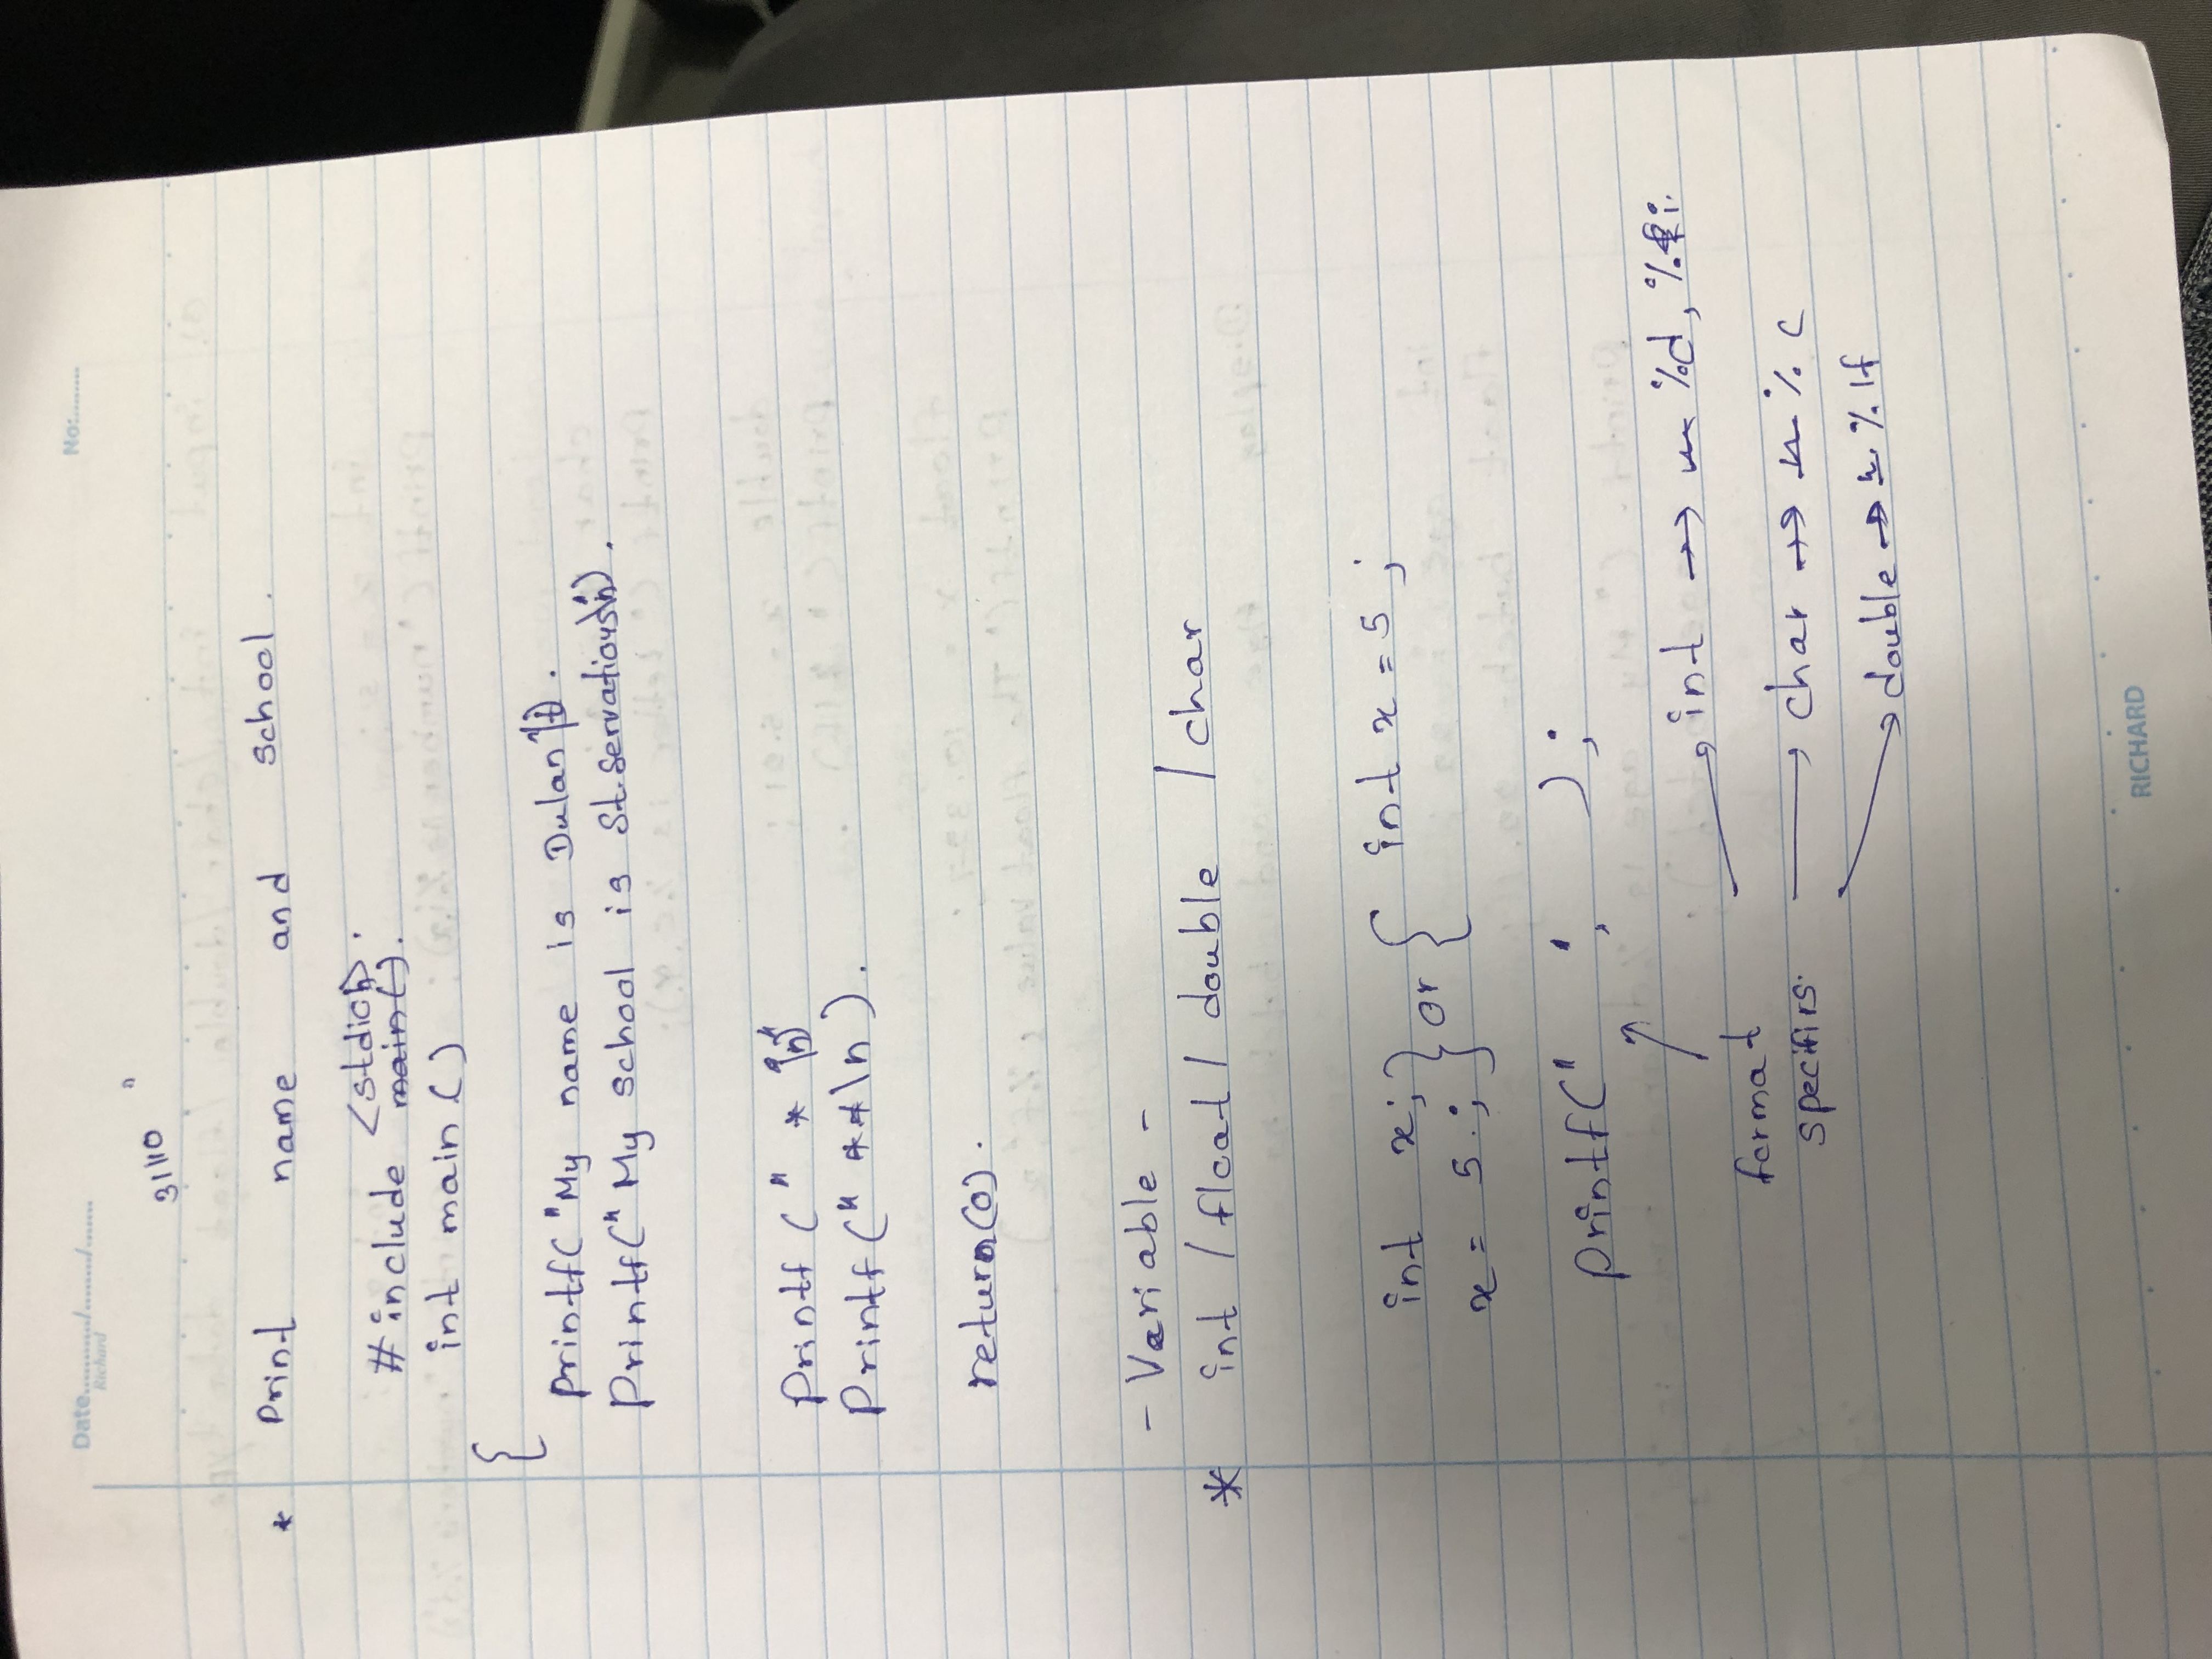 Date........../......../.......
Richard
No:........
31/10
* Print name and school.
<stdioh>.
#include main().
int main ()
{
printf("My name is Dulan").
Printf("My school is St.servatious\n").
Printf (" * \n"
Printf(" **\n ).
return(0).
- Variable -
* int / float / double / char
int x; } or { int x = 5 ;
x = 5.;
printf(" ", );
format specifirs.
int →→ %d, %i.
char →→ %c
double → %lf
RICHARD